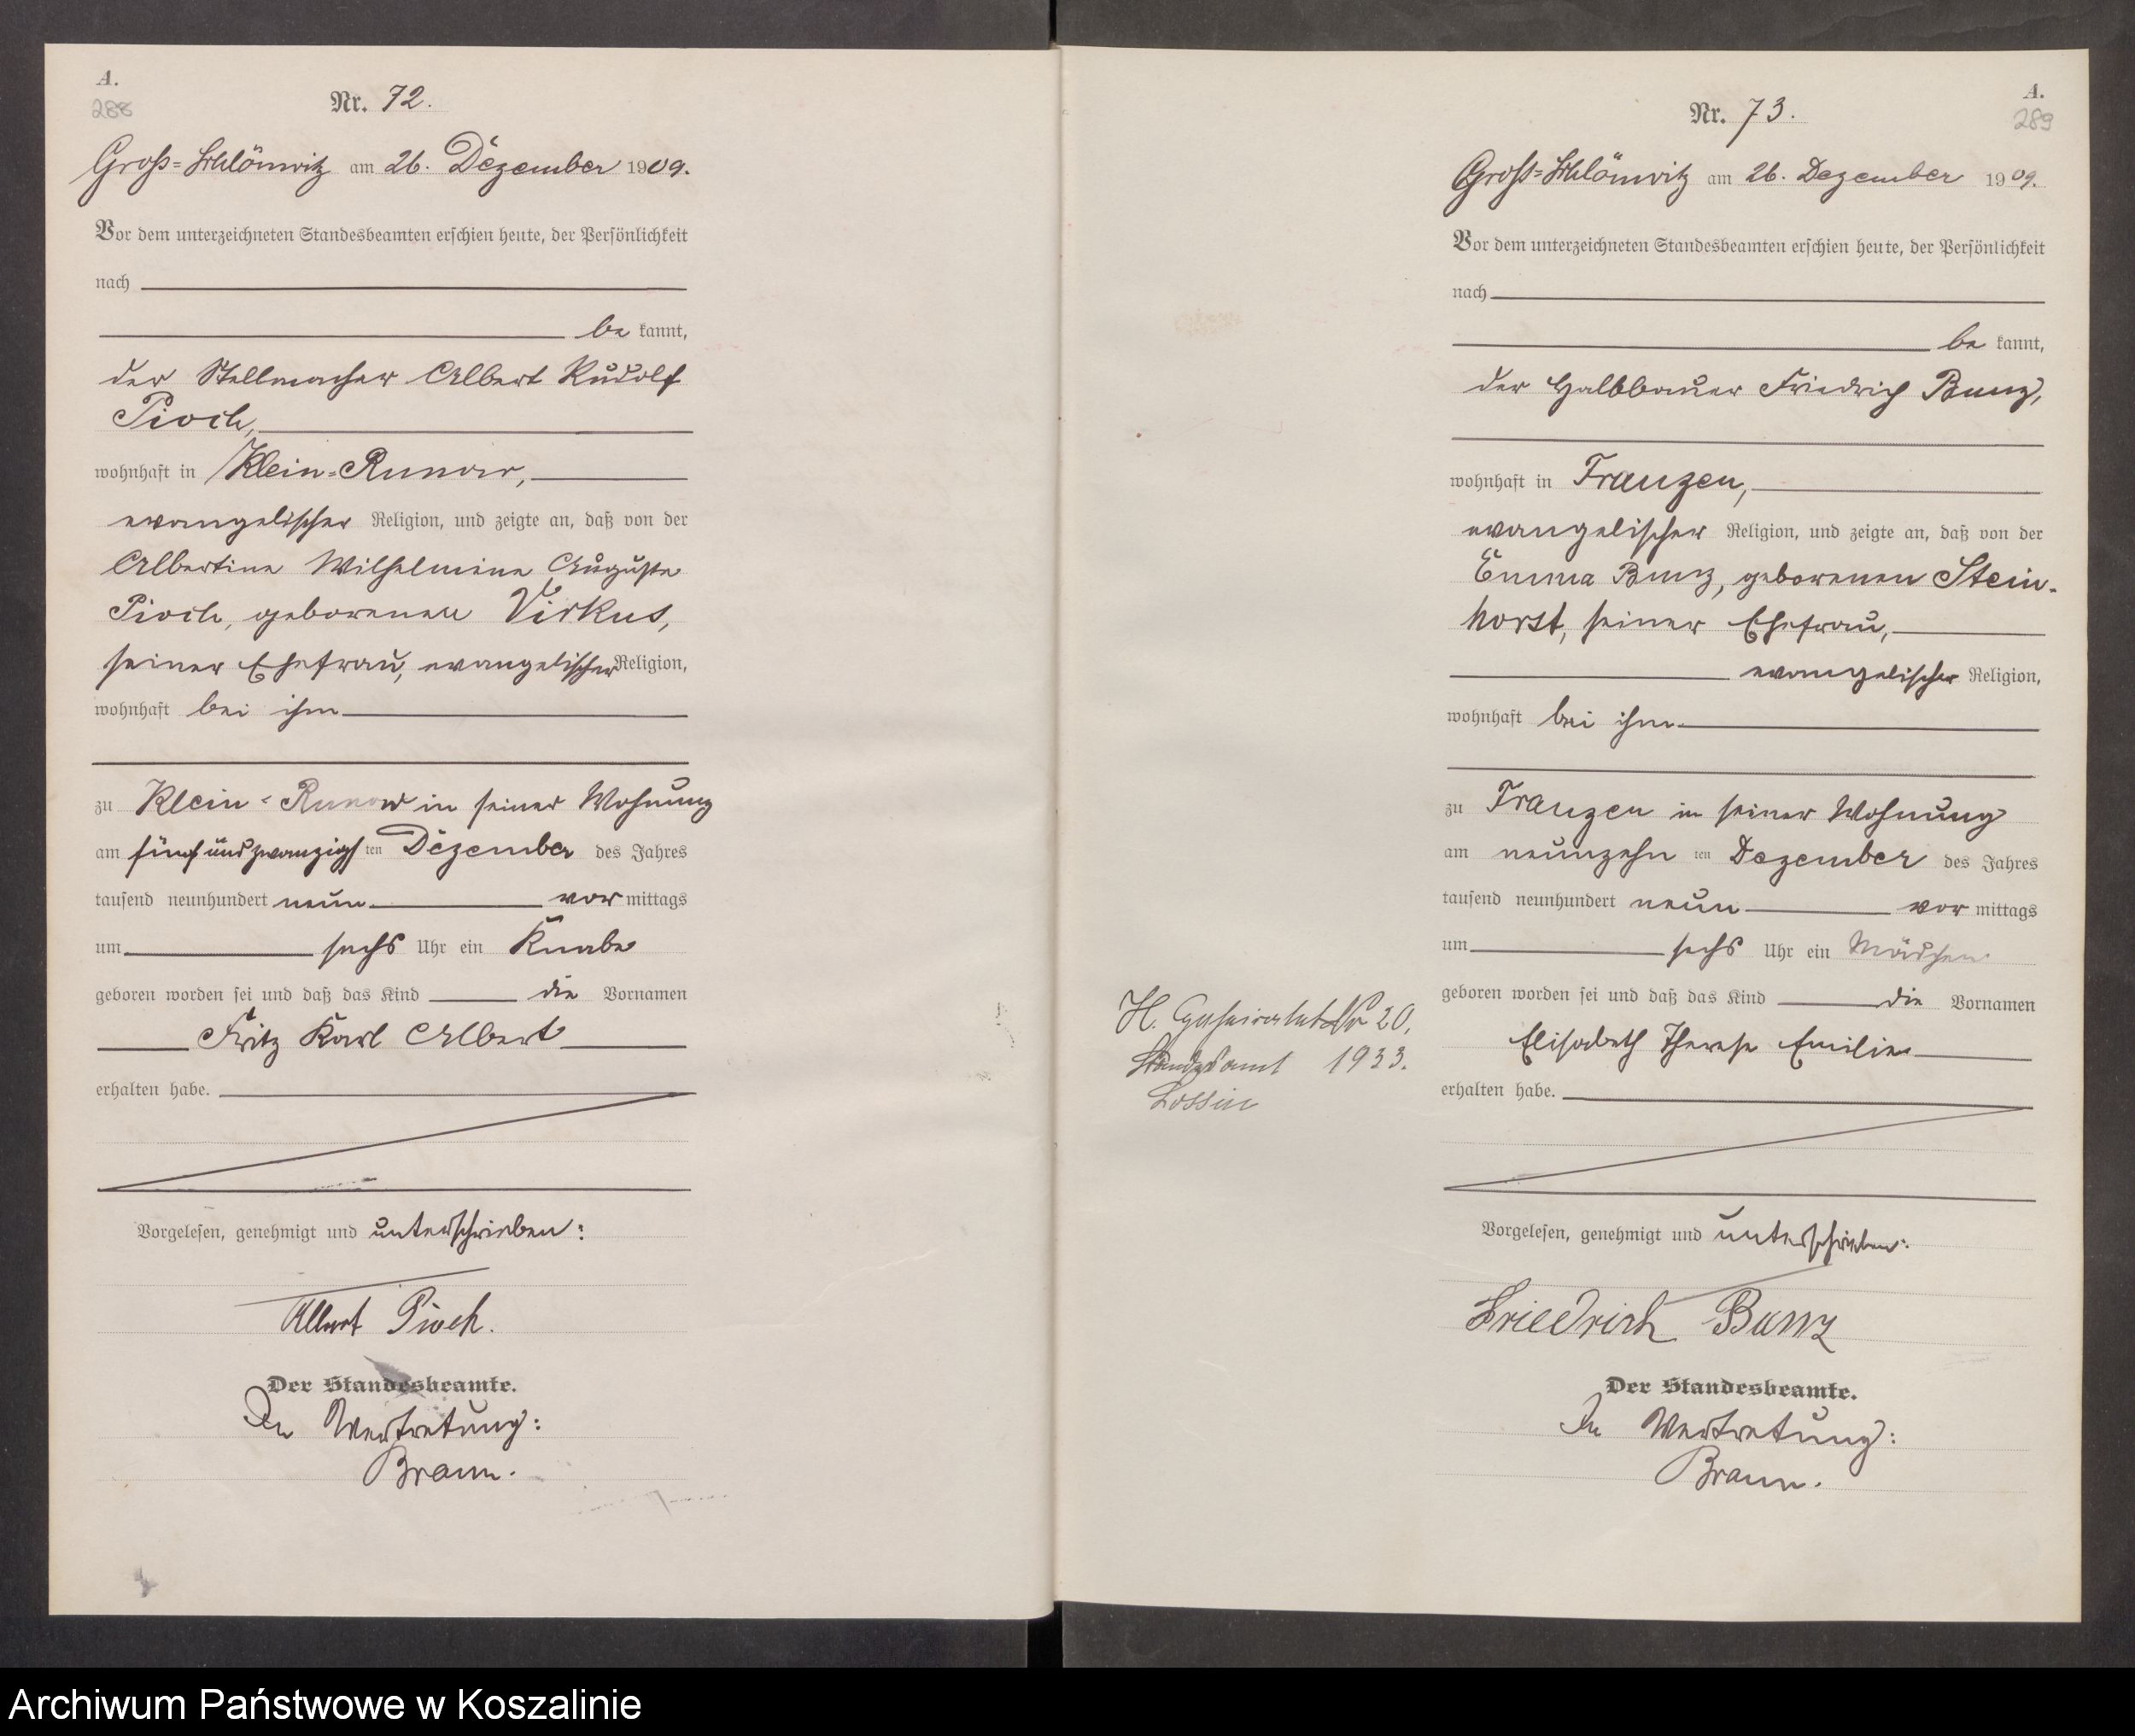 A.
288
Nr. 72.
Groß=Schlönwitz am 26. Dezember 1909.
Vor dem unterzeichneten Standesbeamten erschien heute, der Persönlichkeit
nach
be kannt,
der Stellmacher Albert Rudolf
Pioch,
wohnhaft in Klein=Runow,
evangelischer Religion, und zeigte an, daß von der
Albertine Wilhelmine Auguste
Pioch, geborenen Virkus,
seiner Ehefrau, evangelischer Religion,
wohnhaft bei ihm
zu Klein=Runow in seiner Wohnung
am fünf und zwanzigsten Dezember des Jahres
tausend neunhundert neun vor mittags
um sechs Uhr ein Knabe
geboren worden sei und daß das Kind die Vornamen
Fritz Karl Albert
erhalten habe.
Vorgelesen, genehmigt und unterschrieben:
Albert Pioch.
Der Standesbeamte.
In Vertretung:
Braun.
A.
289
Nr. 73.
Groß=Schlönwitz am 26. Dezember 1909.
Vor dem unterzeichneten Standesbeamten erschien heute, der Persönlichkeit
nach
be kannt,
der Halbbauer Friedrich Bunz,
wohnhaft in Franzen,
evangelischer Religion, und zeigte an, daß von der
Emma Bunz, geborenen Stein-
horst, seiner Ehefrau,
evangelischer Religion,
wohnhaft bei ihm
zu Franzen in seiner Wohnung
am neunzehn ten Dezember des Jahres
tausend neunhundert neun vor mittags
um sechs Uhr ein Mädchen
geboren worden sei und daß das Kind die Vornamen
Elisabeth Therese Emilie
erhalten habe.
H. Geheiratet Nr 20.
Standesamt 1933.
Lossin
Vorgelesen, genehmigt und unterschrieben:
Friedrich Bunz
Der Standesbeamte.
In Vertretung:
Braun.
Archiwum Państwowe w Koszalinie